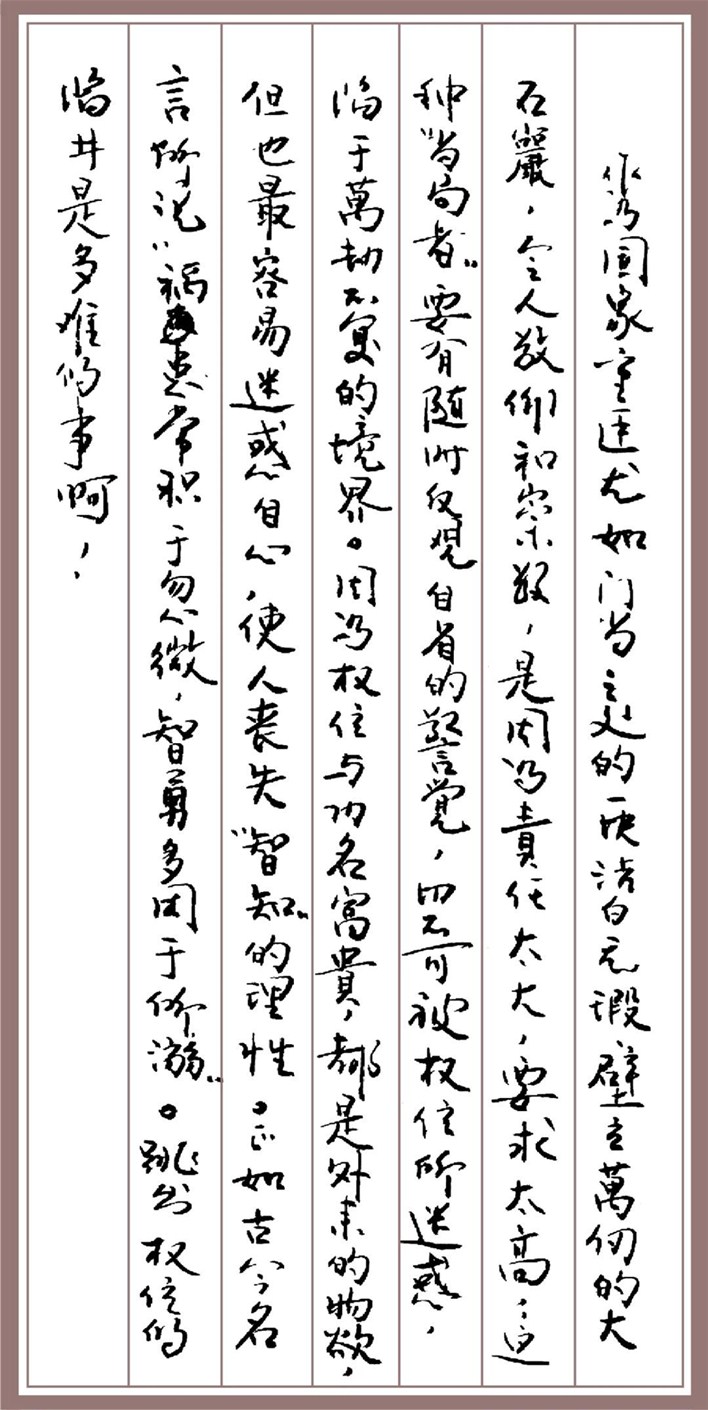 作為国家重臣尤如门当立处的一块洁白无瑕壁立萬仞的大
石巖，令人敬仰和崇敬，是因為責任太大，要求太高，这
种“当局者”要有随时反观自省的警觉，切不可被权位所迷惑，
陷于萬劫不复的境界。因為权位与功名富貴，都是外来的物欲，
但也最容易迷惑自心，使人丧失“智知”的理性。正如古今名
言所说“禍患常积于忽微，智勇多困于所溺”。跳出权位的
陷井是多难的事啊！